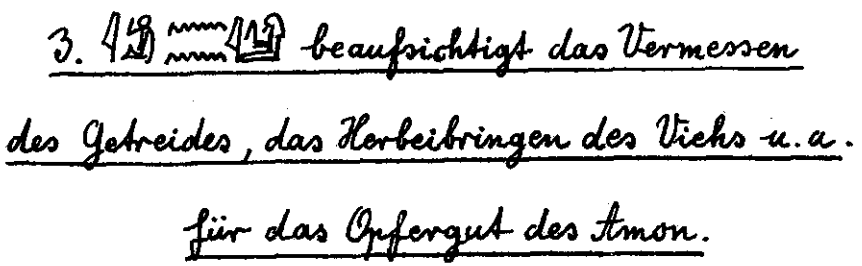 3. beaufsichtigt das Vermessen
des Getreides, das Herbeibringen des Viehs u. a.
für das Opfergut des Amon.